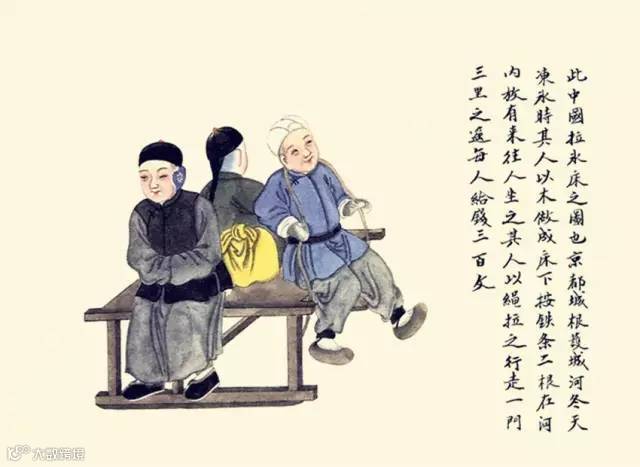 此中國拉氷床之圖也京都城根護城河冬天
凍氷時其人以木做成床下按鉄条二根在河
内放有来往人坐之其人以繩拉之行走一門
三里之遥每人給錢三百文
大数跨境